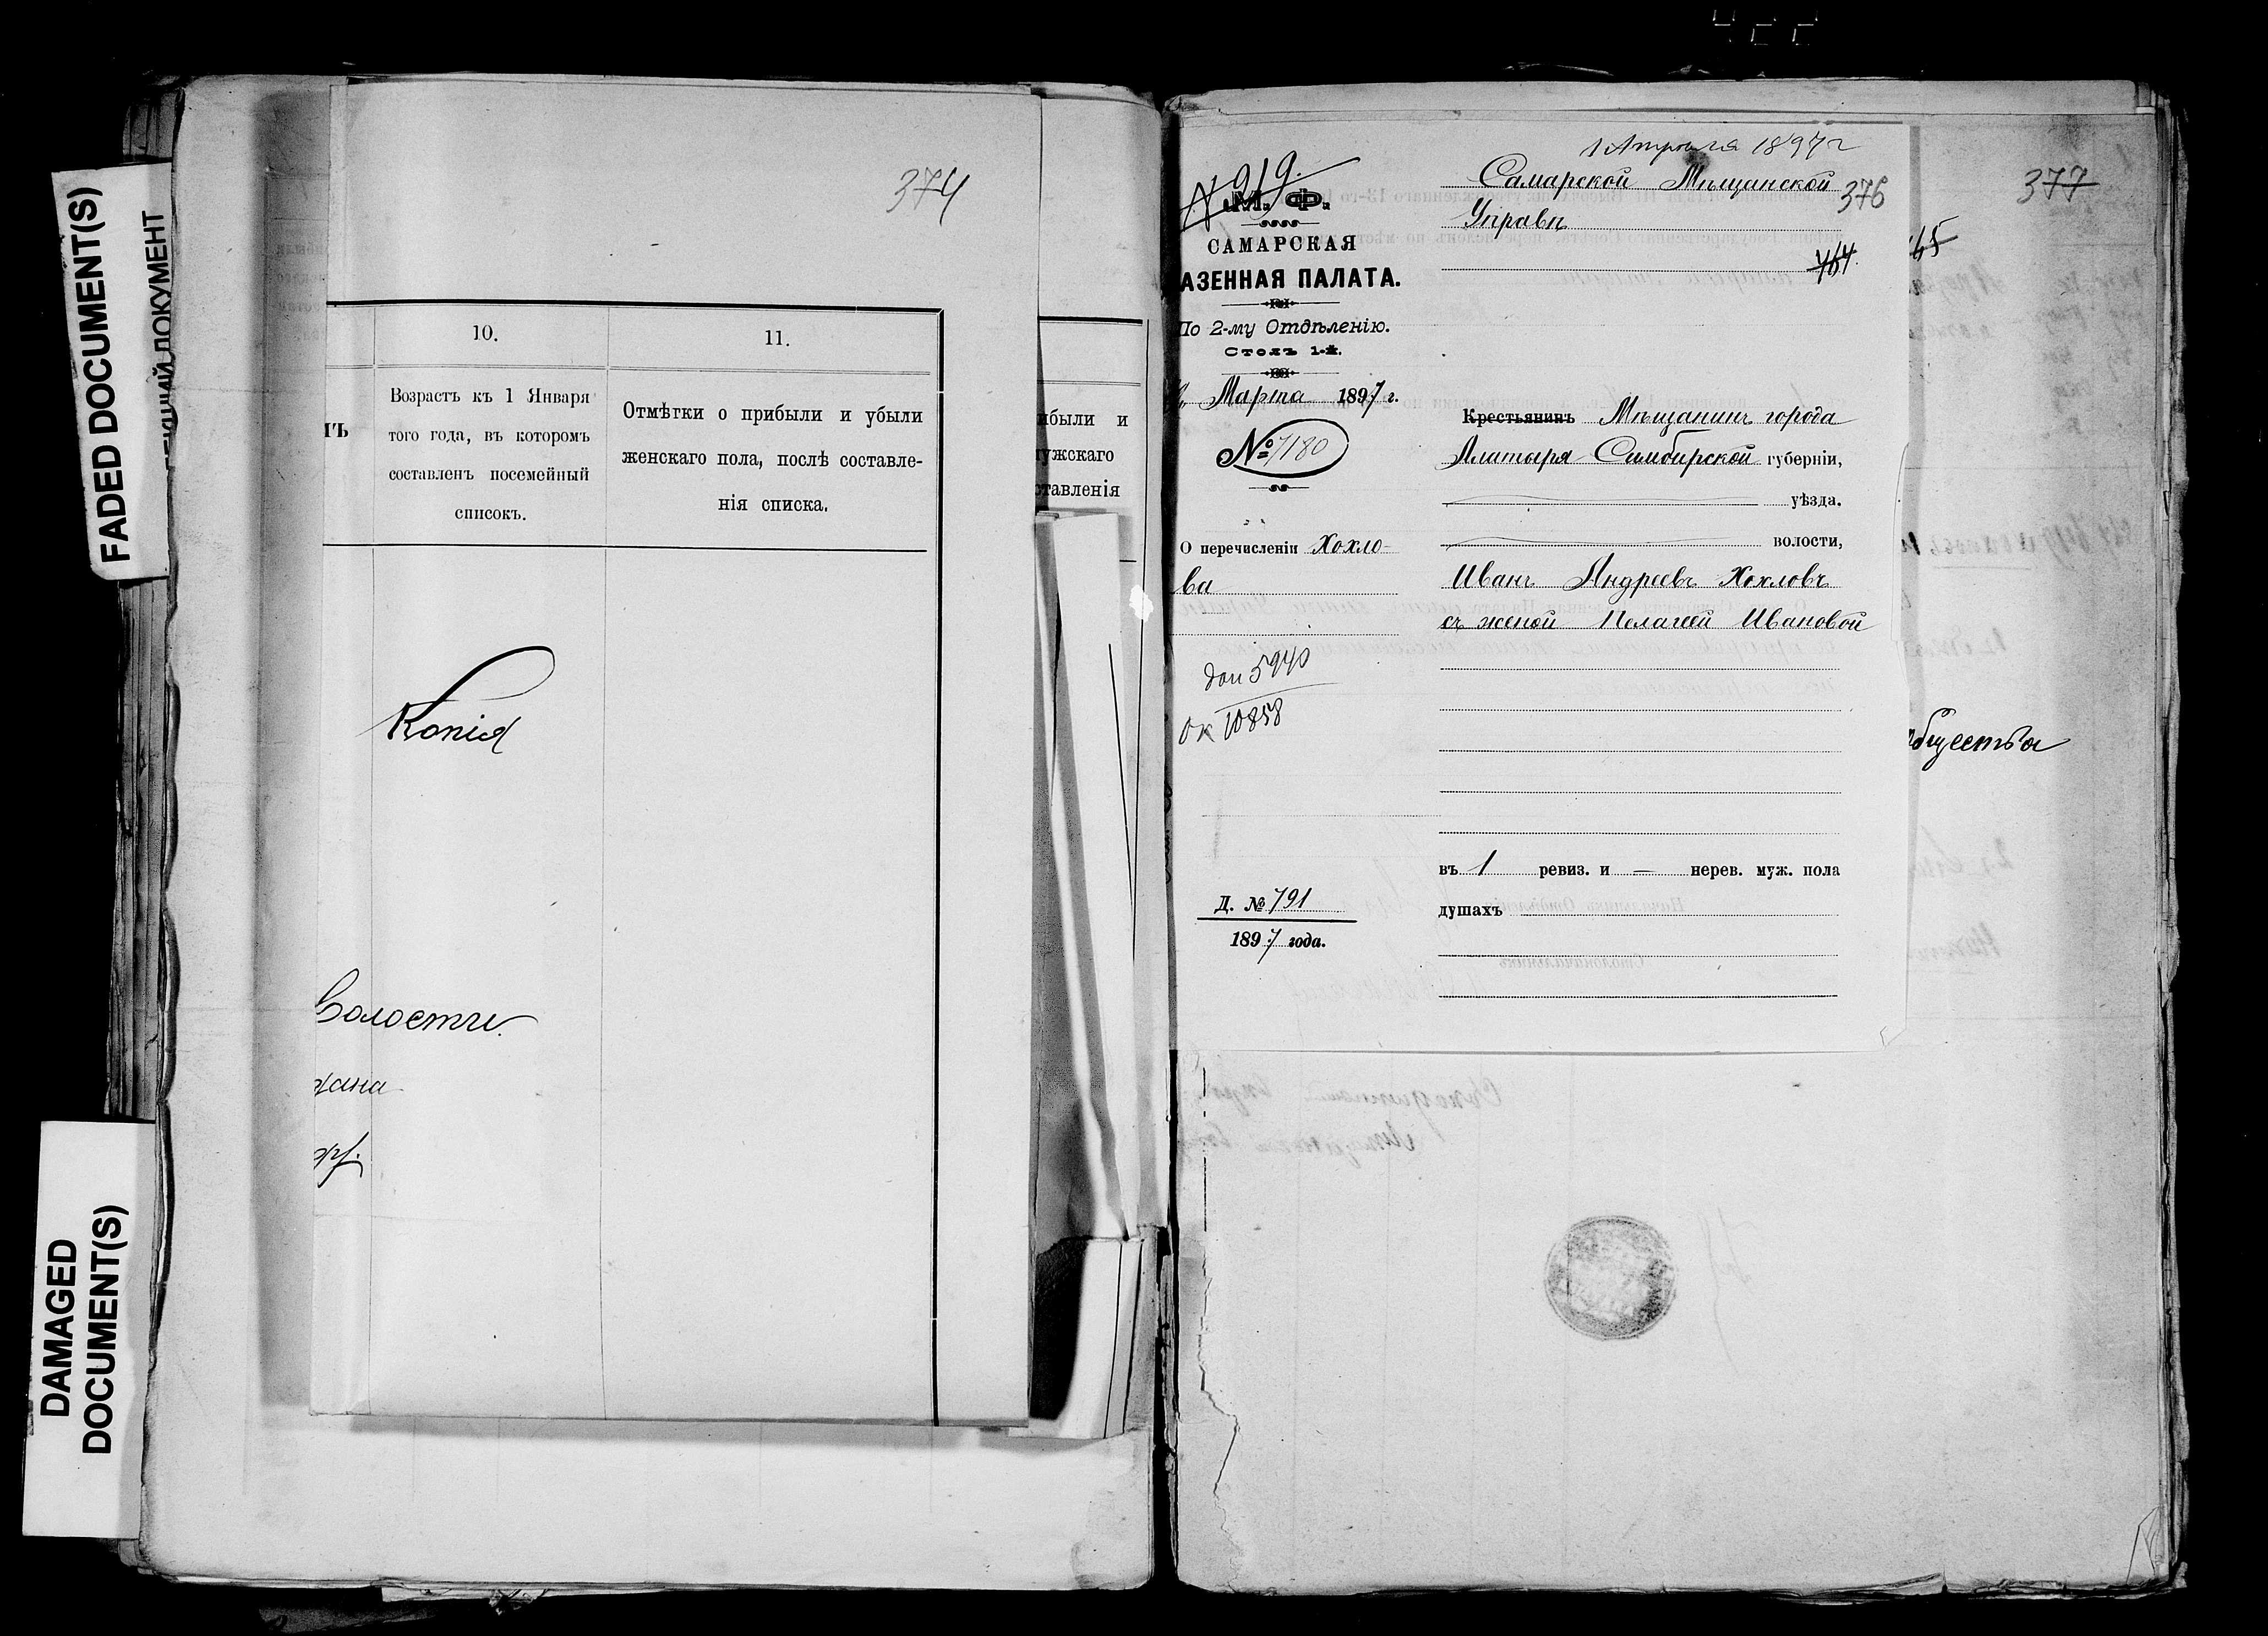 422
FADED DOCUMENT(S)
ДОКУМЕНТ
DAMAGED
DOCUMENT(S)
374
10.
11.
Возрастъ къ 1 Января
того года, въ которомъ
составленъ посемейный
списокъ.
Отмѣтки о прибыли и убыли
женскаго пола, послѣ составле-
нія списка.
Копія
Волости.
были и
ужскаго
ставленія
№ 219.
М. Ф.
САМАРСКАЯ
АЗЕННАЯ ПАЛАТА.
По 2-му Отдѣленію.
Столъ 1-й.
Марта 1897 г.
№ 7180
О перечисленіи Хохло-
ва
доп 5940
ок 10858
Д. № 791
1897 года.
1 Апрѣля 1897 г
Самарской Мѣщанской
376
Управѣ
764.
Крестьянинъ Мѣщанинъ города
Алатыря Симбирской губерніи,
уѣзда.
волости,
Иванъ Андреевъ Хохловъ
съ женой Пелагеей Ивановой
въ 1 ревиз. и — нерев. муж. пола
душахъ
377
бщества